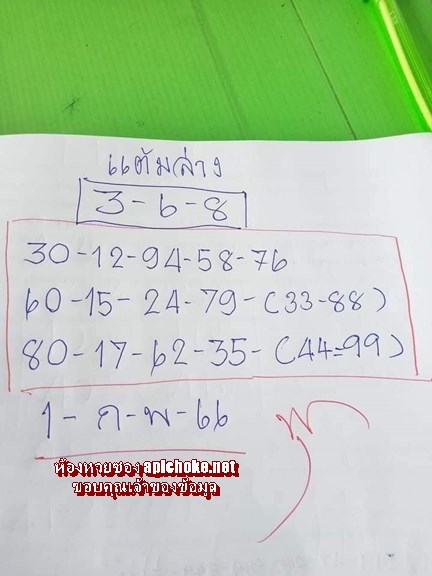 แต้มล่าง
3-6-8
30-12-94-58-76
60-15-24-79-(33-88)
80-17-62-35-(44=99)
1-ก-พ-66
ห้องหวยซอง apichoke.net
ขอบคุณเจ้าของข้อมูล